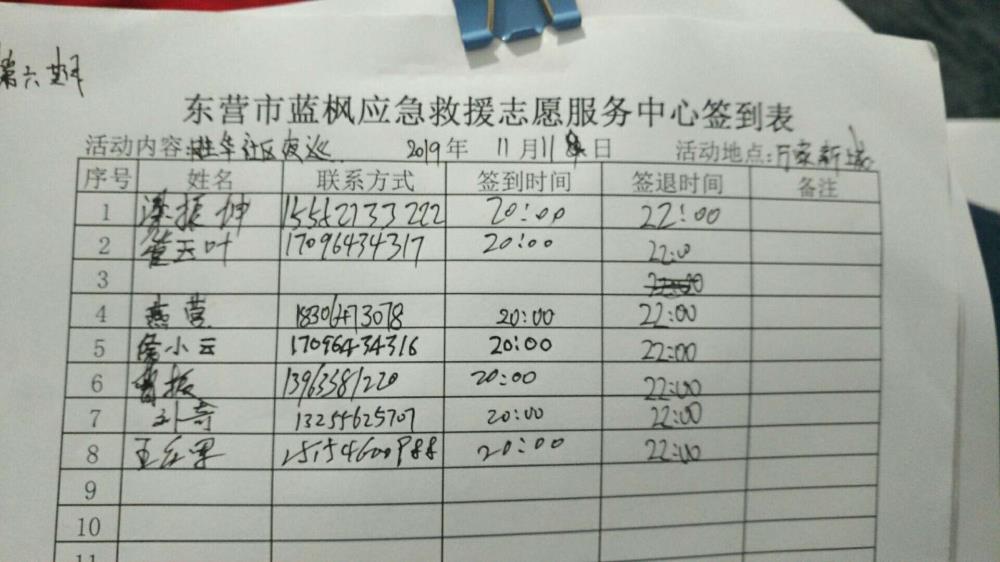 第六期
东营市蓝枫应急救援志愿服务中心签到表
活动内容:胜华社区夜巡 2019年 11月11日 活动地点:万家新城
序号 姓名 联系方式 签到时间 签退时间 备注
1 振坤 15562733222 20:00 22:00
2 董云叶 17096434317 20:00 22:0
3
4 燕营 20:00 22:00
5 小云 17096434316 20:00 22:00
6 振 13963581220 20:00 22:00
7 刘奇 13255625707 20:00 22:00
8 王红军 20:00 22:00
9
10
11